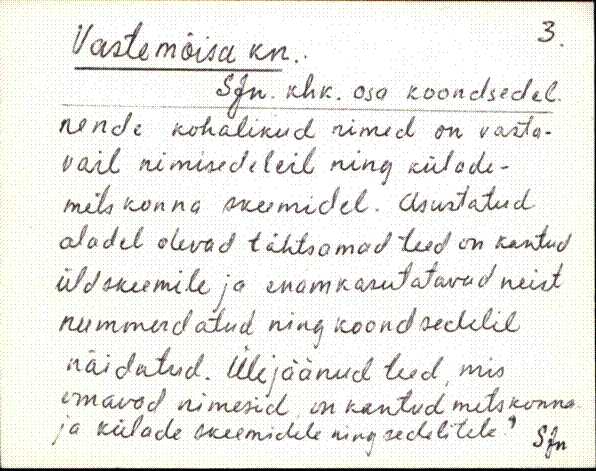 3.
Vastemõisa kn.
Sfn. khk. osa koondsedel.
nende kohalikud nimed on vasta-
vail nimisedeleil ning külade-
metskonna skeemidel. Asustatud
aladel olevad tähtsamad teed on kantud
üldskeemile ja enamkasutatavad neist
nummerdatud ning koondsedelil
näidatud. Ülejäänud teed, mis
omavad nimesid, on kantud metskonna
ja külade skeemidele ning sedelitele.
Sfn